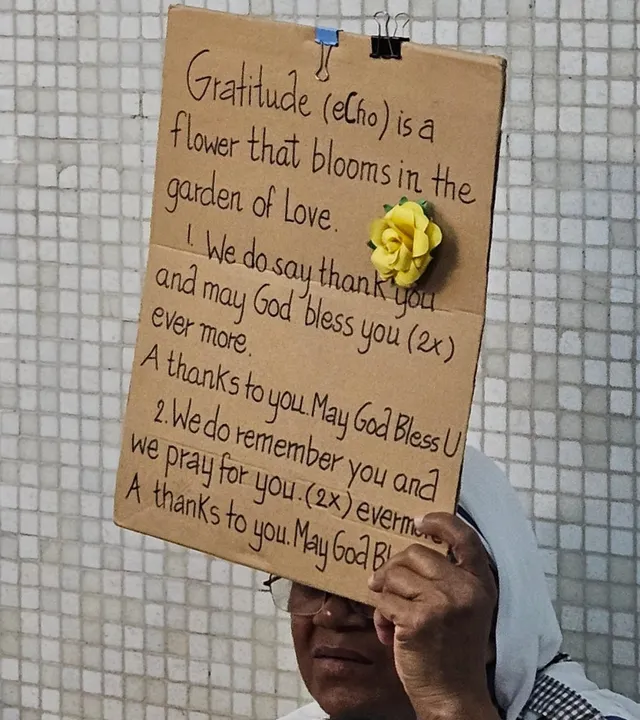 Gratitude (echo) is a
flower that blooms in the
garden of Love.
1. We do say thank you
and may God bless you (2x)
ever more.
A thanks to you. May God Bless U
2. We do remember you and
we pray for you. (2x) evermore
A thanks to you. May God Bl